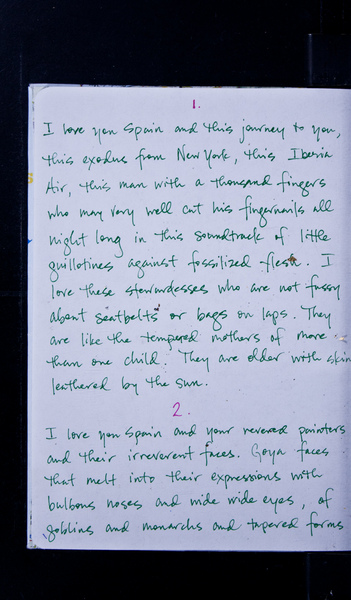 1.
I love you Spain and this journey to you,
this exodus from New York, this Iberia
Air, this man with a thousand fingers
who may very well cut his fingernails all
night long in this soundtrack of little
guillotines against fossilized flesh. I
love these stewardesses who are not fussy
about seatbelts or bags on laps. They
are like the tempered mothers of more
than one child. They are older with skin
leathered by the sun.
2.
I love you Spain and your revered painters
and their irreverent faces. Goya faces
that melt into their expressions with
bulbous noses and wide wide eyes, of
goblins and monarchs and tapered forms